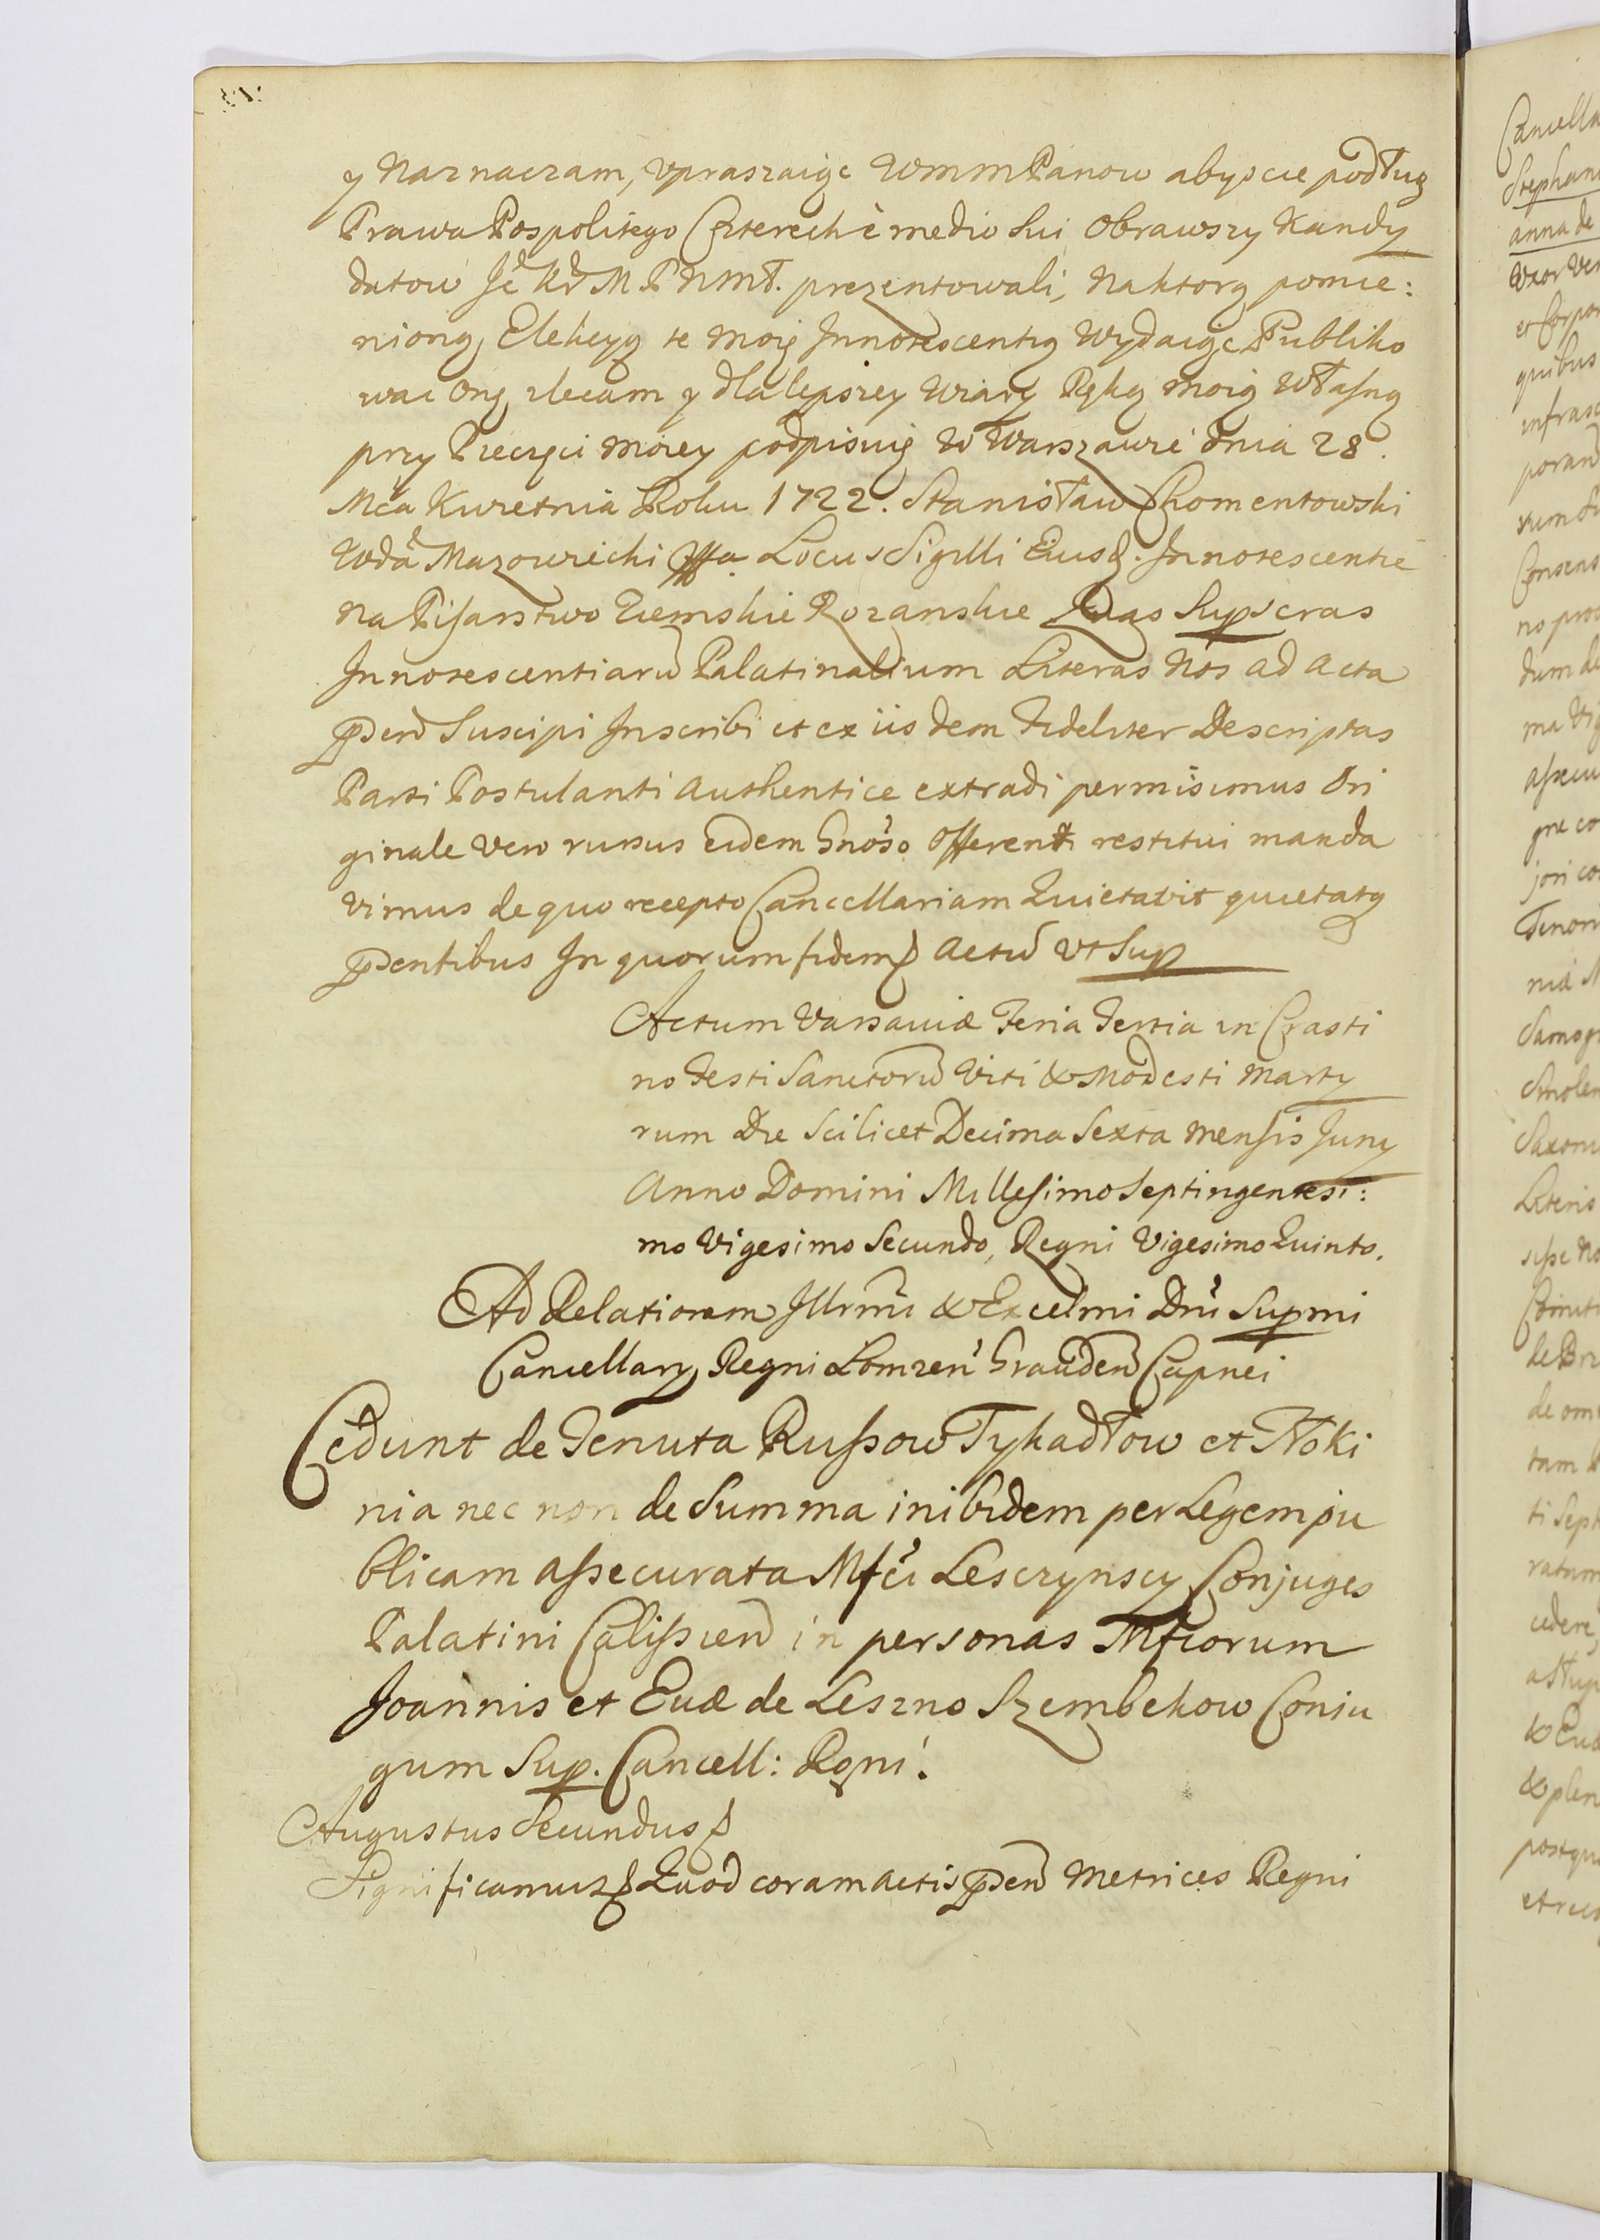 y Naznaczam, vpraszaiąc WmmPanow abyscie podług
Prawa Pospolitego Czterech è medio sui Obrawszy Kandy
datow Je Kr M P N Mł. prezentowali, Na ktorą pomie:
nioną Elekcyą te moię Innotescentią Wydaiąc Publiko
wac Onę zlecam y dla lepszey Wiary Ręką moią Własną
przy Pieczęci moiey podpisuię W Warszawie dnia 28.
Mca Kwietnia Roku 1722. Stanisław Chomentowski
Wda Mazowiecki Locus Sigilli Eiusd. Innotescentie
Na Pisarstwo Ziemskie Rozanskie Quas Supscras
Innotescentiaru Palatinalium Literas Nos ad Acta
pden Suscipi Inscribi et ex iisdem Fideliter Descriptas
Parti Postulanti Authentice extradi permisimus Ori
ginale Vero rursus eidem Gnoso Offerenti restitui manda
vimus de quo recepto Cancellariam Quietavit quietatq
pdentibus In quorum fidem Actu Vt Sup
Actum Varsaviæ Feria Tertia in Crasti
no Festi Sanctoru Viti & Modesti Marty
rum Die Scilicet Decima Sexta Mensis Juny
Anno Domini Millesimo Septingentesi:
mo Vigesimo Secundo, Regni Vigesimo Quinto.
Ad Relationem Illrmi & Excelmi Dni Supmi
Cancellary Regni Lomzen Grauden Capnei
Cedunt de Tenuta Russow Tykadłow et Tłoki
nia nec non de Summa inibidem per Legem pu
blicam assecurata Mfci Lesczynscy Conjuges
Palatini Calissien in personas Mficorum
Joannis et Euæ de Leszno Szembekow Coniu
gum Sup. Cancell: Rgni.
Augustus Secundus
Significamus Quod coram Actis pden Metrices Regni